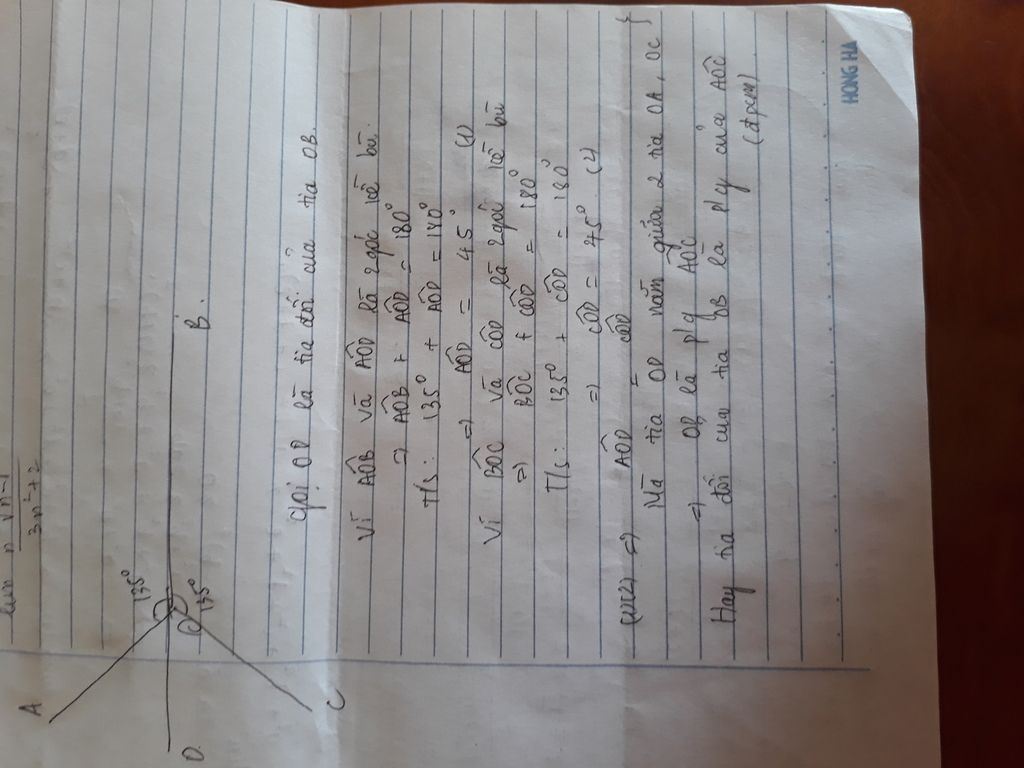 lim n √n-1
3n²+2
A
135°
O
135°
D
B
C
Gọi OD là tia đối của tia OB
Vì AÔB và AÔD là 2 góc kề bù.
=> AÔB + AÔD = 180°
T/s: 135° + AÔD = 180°
=> AÔD = 45° (1)
Vì BÔC và CÔD là 2 góc kề bù
=> BÔC + CÔD = 180°
T/s: 135° + CÔD = 180°
=> CÔD = 45° (2)
(1)(2) => AÔD = CÔD
Mà tia OD nằm giữa 2 tia OA, OC }
=> OD là p/g AÔC
Hay tia đối của tia OB là p/g của AÔC
(đpcm)
HONG HA